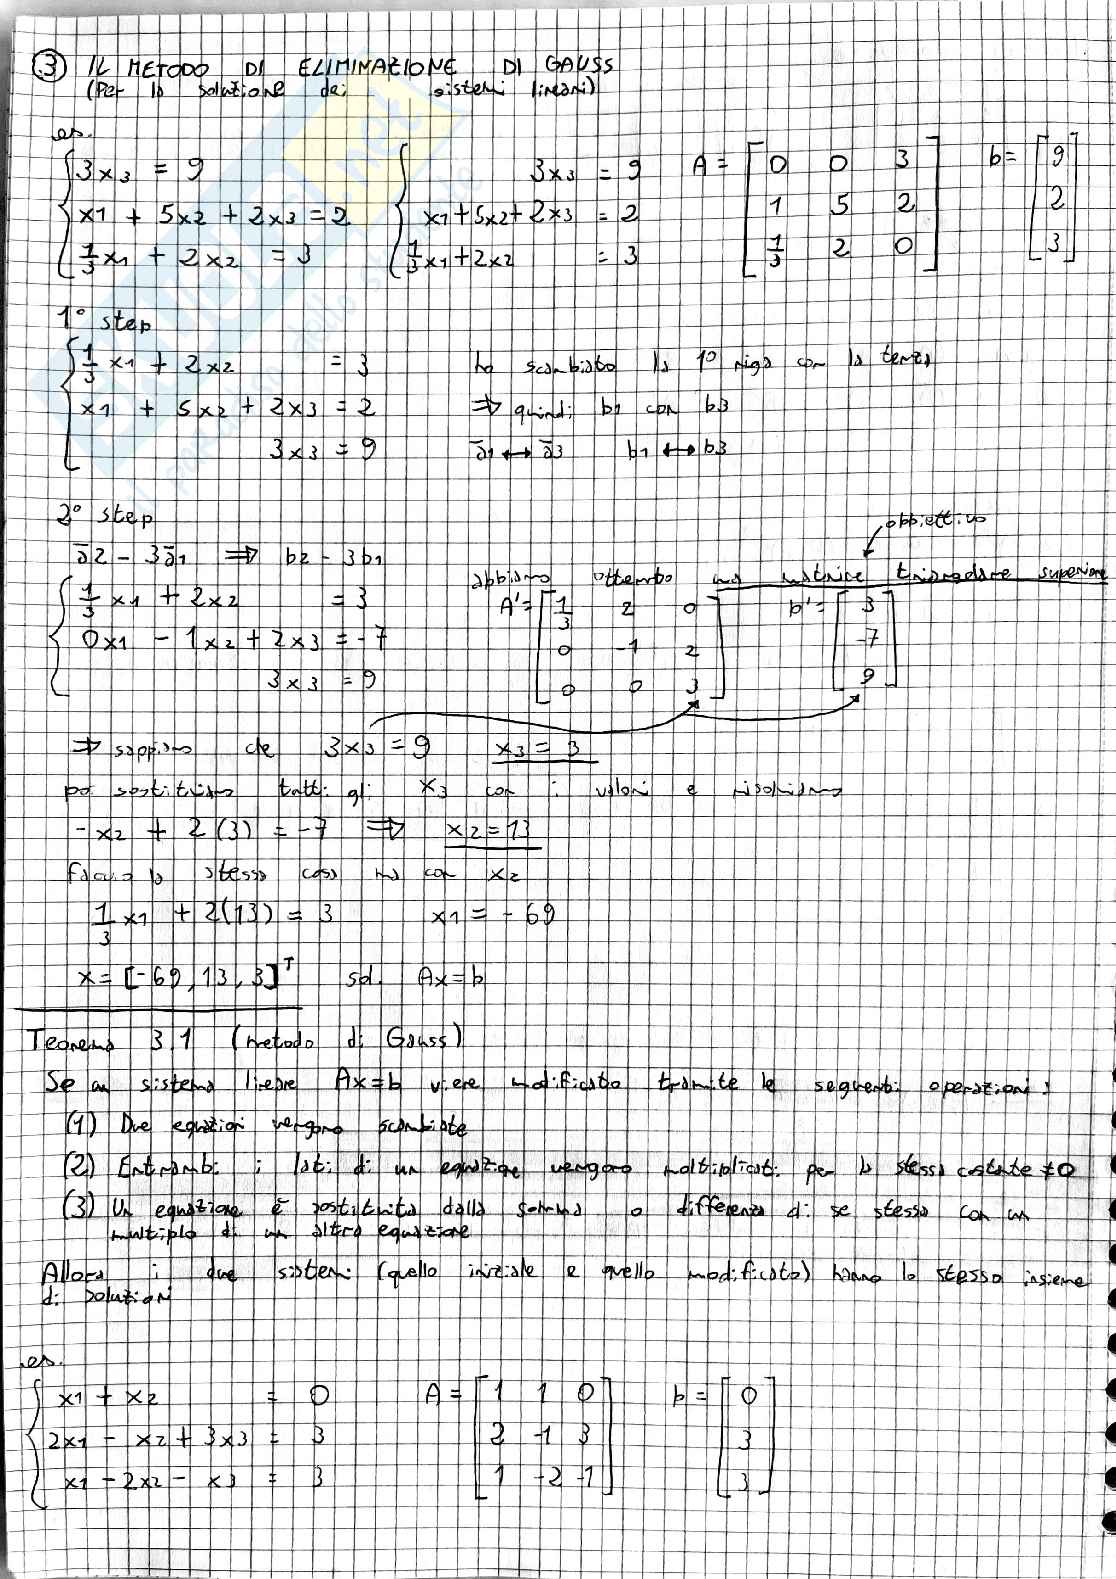 .3 IL METODO DI ELIMINAZIONE DI GAUSS
(Per la soluzione dei sistemi lineari)
es.
3x3 = 9
x1 + 5x2 + 2x3 = 2
1/3 x1 + 2x2 = 3
3x3 = 9
x1 + 5x2 + 2x3 = 2
1/3 x1 + 2x2 = 3
A = [0 0 3
1 5 2
1/3 2 0]
b = [9
2
3]
1° step
1/3 x1 + 2x2 = 3 ho scambiato la 1° riga con la terza
x1 + 5x2 + 2x3 = 2 ⇒ quindi b1 con b3
3x3 = 9 a̅1 ↔ a̅3 b1 ↔ b3
2° step
obbiettivo
a̅2 - 3a̅1 ⇒ b2 - 3b1
abbiamo ottenuto una matrice triangolare superiore
1/3 x1 + 2x2 = 3
0x1 - 1x2 + 2x3 = -7
3x3 = 9
A' = [1/3 2 0
0 -1 2
0 0 3]
b' = [3
-7
9]
⇒ sappiamo che 3x3 = 9 x3 = 3
poi sostituiamo tutti gli x3 con i valori e risolviamo
-x2 + 2(3) = -7 ⇒ x2 = 13
Faccio la stessa cosa ma con x2
1/3 x1 + 2(13) = 3 x1 = -69
x = [-69, 13, 3]^T sol. Ax=b
Teorema 3.1 (metodo di Gauss)
Se un sistema lineare Ax=b viene modificato tramite le seguenti operazioni:
(1) Due equazioni vengono scambiate
(2) Entrambi i lati di un equazione vengono moltiplicati per la stessa costante ≠0
(3) Un equazione è sostituita dalla somma o differenza di se stessa con un
multiplo di un altra equazione
Allora i due sistemi (quello iniziale e quello modificato) hanno lo stesso insieme
di soluzioni
es.
x1 + x2 = 0
2x1 - x2 + 3x3 = 3
x1 - 2x2 - x3 = 3
A = [1 1 0
2 -1 3
1 -2 -1]
b = [0
3
3]